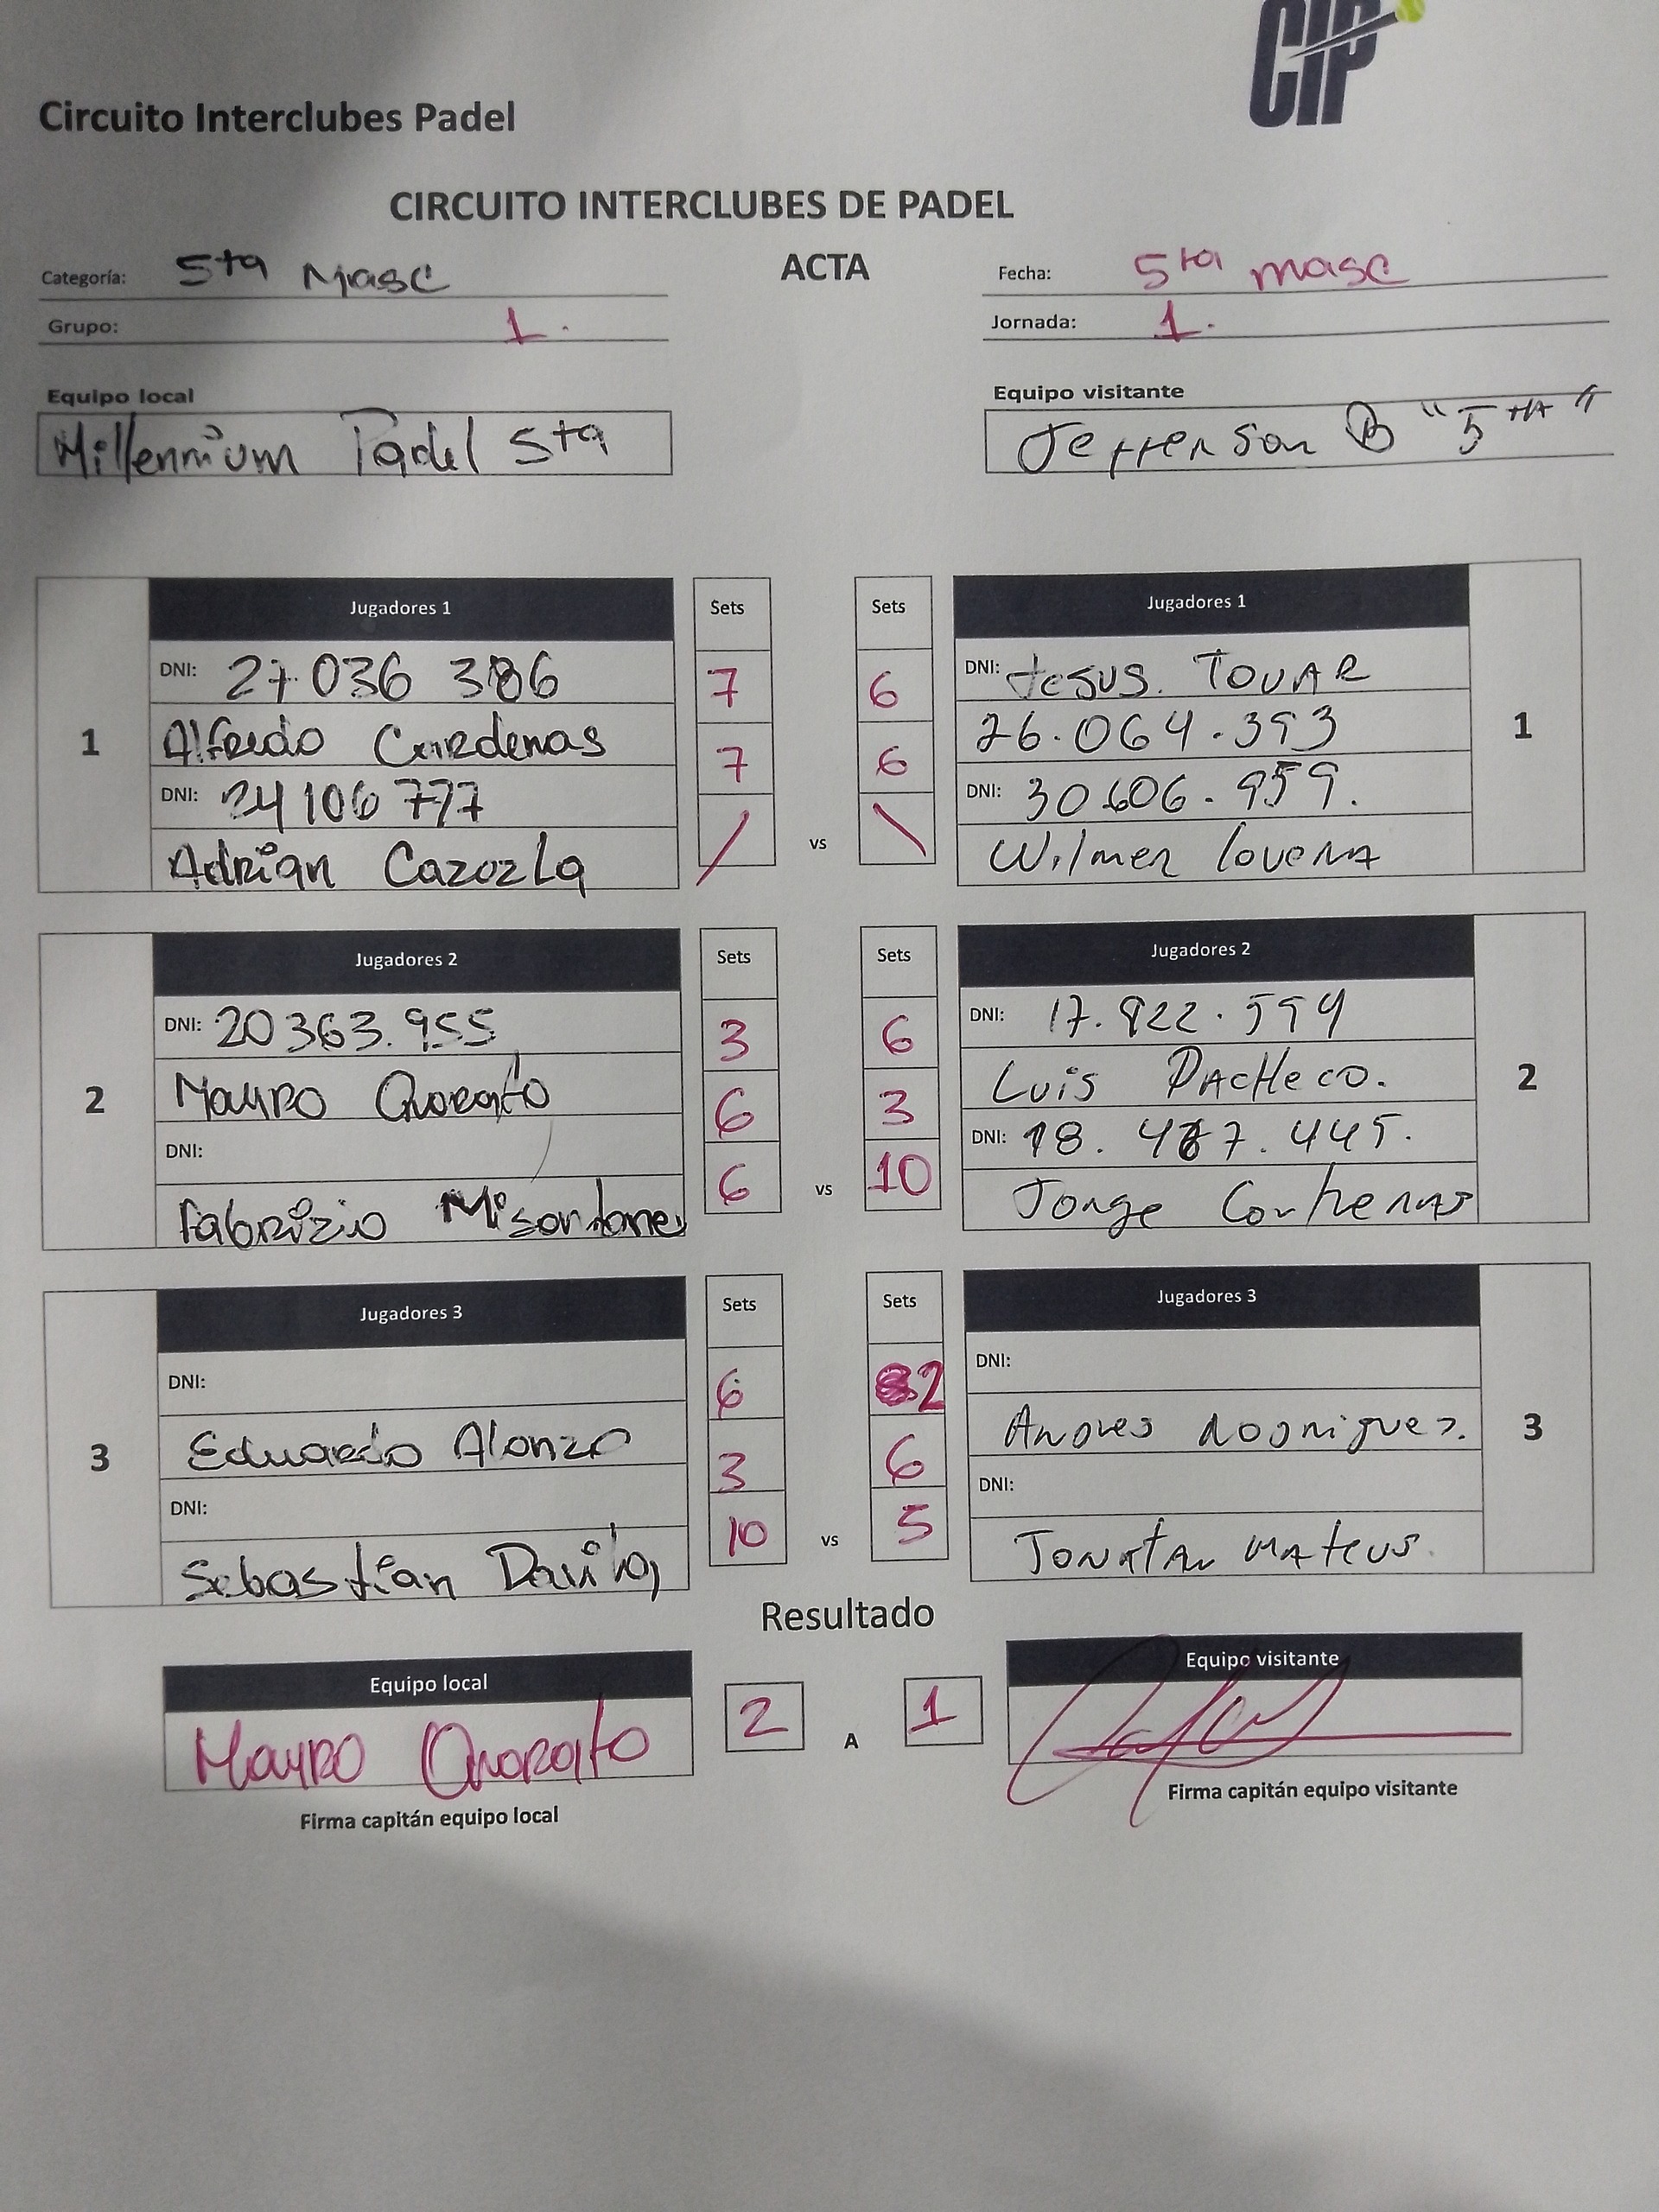 CIP
Circuito Interclubes Padel
CIRCUITO INTERCLUBES DE PADEL
Categoría: 5ta Masc
ACTA
Fecha: 5ta masc
Grupo: 1.
Jornada: 1.
Equipo local
Equipo visitante
Millennium Padel 5ta
Jefferson B "5TA"
Jugadores 1 Sets Sets Jugadores 1
DNI: 27 036 386 7 6 DNI: Jesus. TOVAR
1 Alfredo Cardenas 7 6 26.064.393 1
DNI: 24 106 777 / vs \ DNI: 30.606.959.
Adrian Cazorla Wilmer Lovera
Jugadores 2 Sets Sets Jugadores 2
DNI: 20 363.955 3 6 DNI: 17.922.594
2 Mauro Quorato 6 3 Luis Pacheco. 2
DNI: 6 vs 10 DNI: 18. 487.445.
Fabrizio Jorge Contreras
Jugadores 3 Sets Sets Jugadores 3
DNI: 6 2 DNI:
3 Eduardo Alonzo 3 6 Andres Rodriguez. 3
DNI: 10 vs 5 DNI:
Sebastian Davila Jonatan Mateus.
Resultado
Equipo local
Equipo visitante
Mauro Quorato 2 A 1
Firma capitán equipo local
Firma capitán equipo visitante